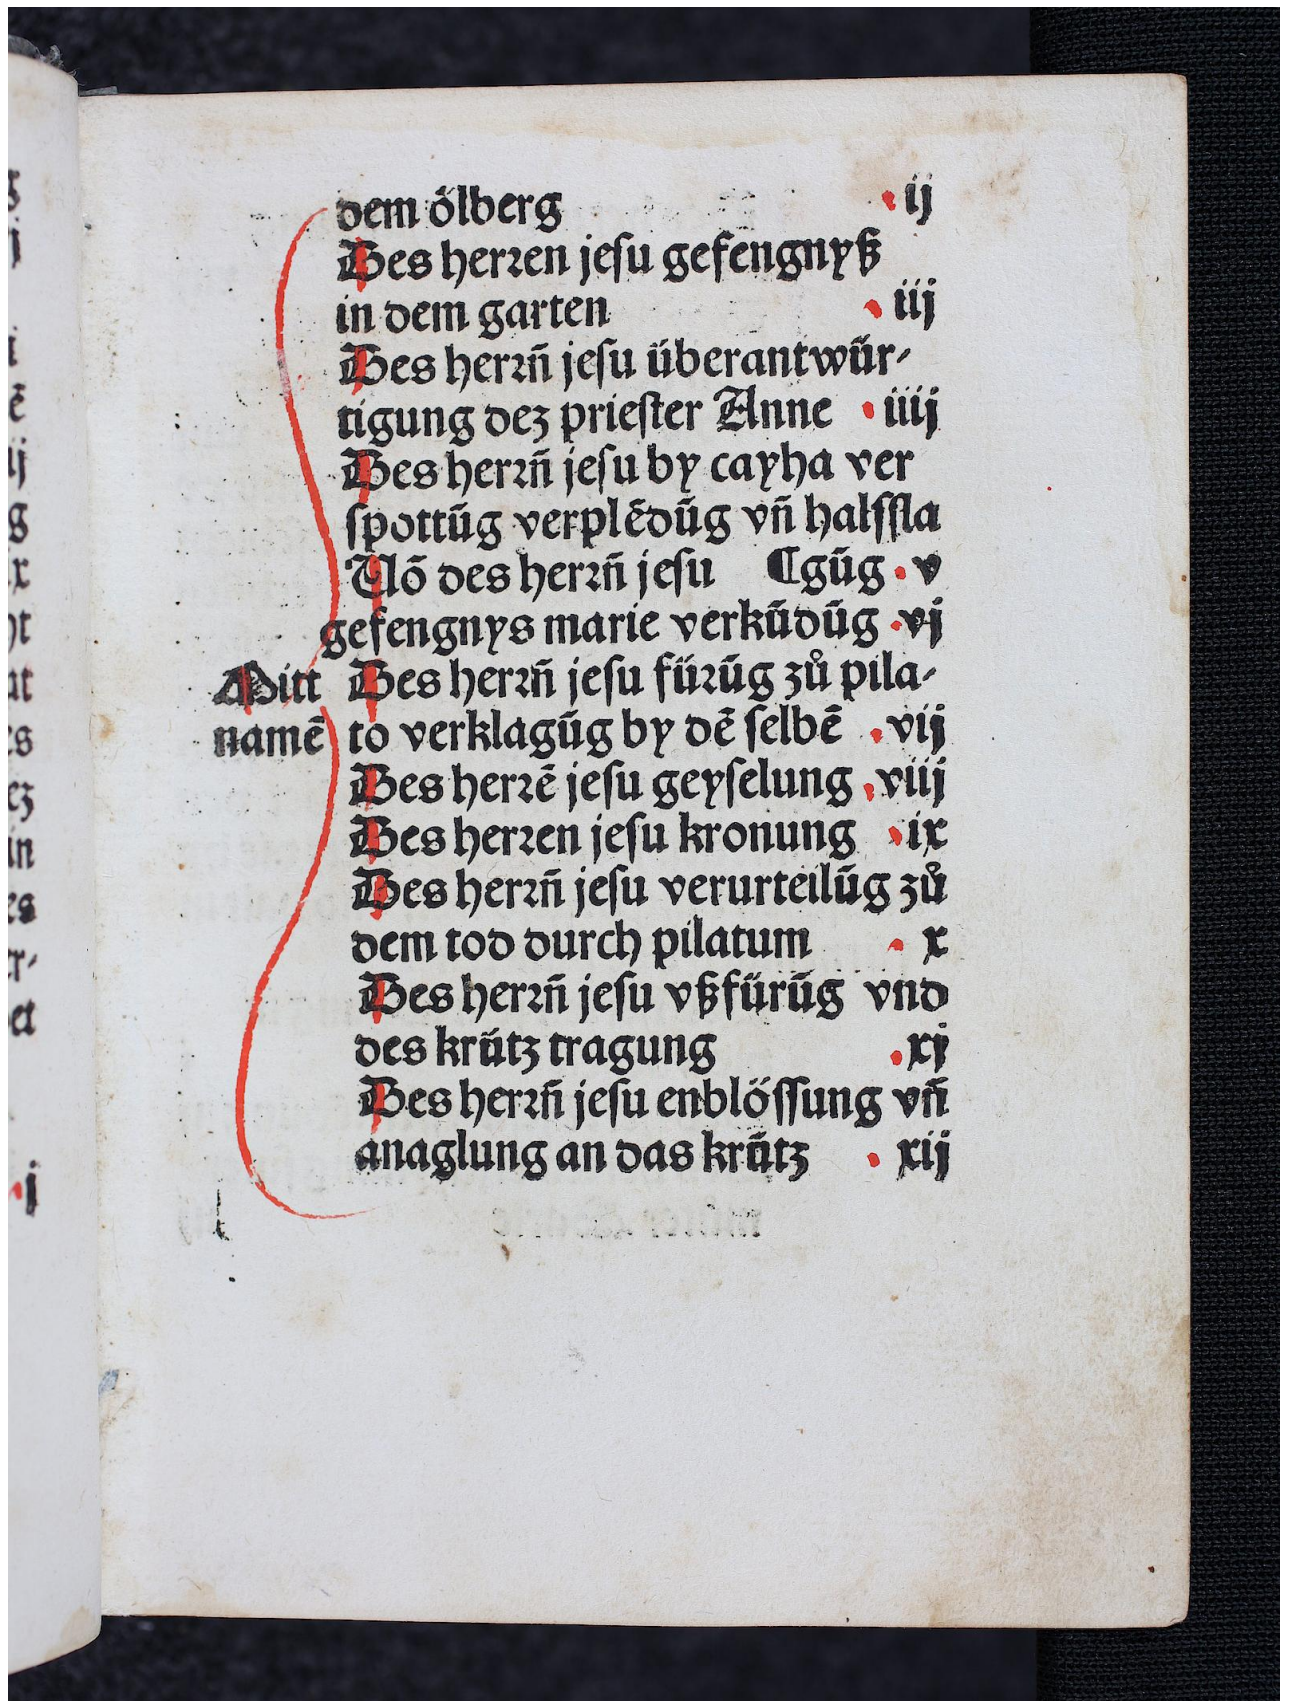 dem ölberg .ij
Des herren jesu gefengnyß
in dem garten .iij
Des herrn̄ jesu überantwür-
tigung dez priester Anne .iiij
Des herrn̄ jesu by cayha ver
spottūg verplēdūg vn̄ halssla
Uō des herrn̄ jesu ¶gūg .v
gefengnys marie verkūdūg .vj
Mitt Des herrn̄ jesu fürūg zů pila-
namē to verklagūg by dē selbē .vij
Des herrē jesu geyselung .viij
Des herren jesu kronung .ix
Des herrn̄ jesu verurteilūg zů
dem tod durch pilatum .x
Des herrn̄ jesu vßfürūg vnd
des krütz tragung .xj
Des herrn̄ jesu enblössung vn̄
anaglung an das krütz .xij